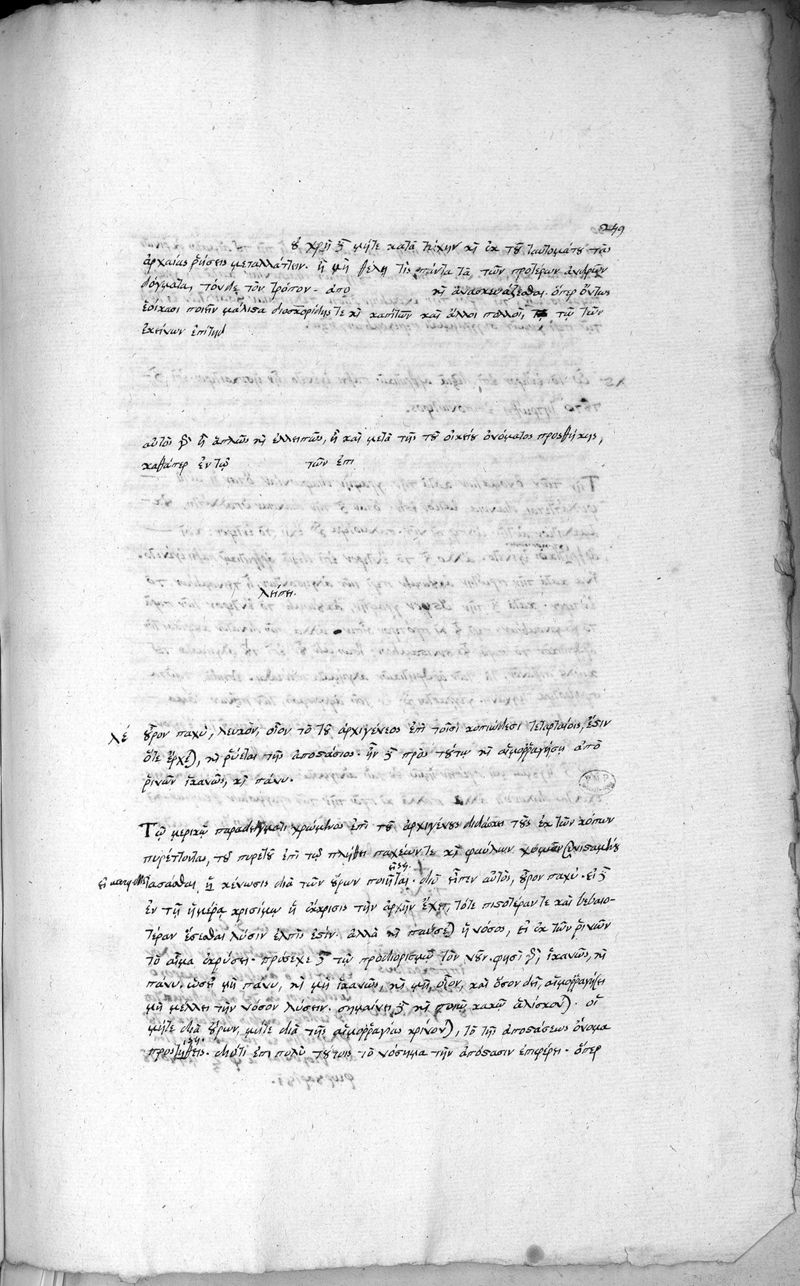 249
οὐ χρὴ δὲ μήτε κατὰ τύχην καὶ ἐκ τοῦ ταυτομάτου τὰς
ἀρχαίας ῥήσεις μεταλλάττειν. ἢ μὴ θέλῃ τις πάντα τὰ τῶν προτέρων ἀνδρῶν
δόγματα, τόνδε τὸν τρόπον. ἀπο καὶ ἀνασκευάζεσθαι. ὅπερ ὄντως
ἐοίκασι ποιεῖν μάλιστα διοσκορίδης τε καὶ καπίτων καὶ ἄλλοι πολλοί, τῷ τῶν
ἐκείνων ἐπιτηδ
αὐτοῖς ἢ ἁπλῶς καὶ ἐλλειπῶς, ἢ καὶ μετὰ τῆς τοῦ οἰκείου ὀνόματος προσθήκης,
καθάπερ ἐν τῷ τῶν ἐπι
λείπει.
λέ οὖρον παχὺ, λευκὸν, οἷον τὸ τοῦ ἀρχιγένεος ἐπὶ τοῖσι κοπιώδεσι τεταρταίοις, ἔστιν
ὅτε ἔρχεται, καὶ ῥύεται τῆς ἀποστάσιος. ἢν δὲ πρὸς τούτῳ καὶ αἱμορραγήσῃ ἀπὸ
ῥινῶν ἱκανῶς, καὶ πάνυ.
Τῷ μερικῷ παραδείγματι χρώμενος ἐπὶ τοῦ ἀρχιγένους διδάσκει τοὺς ἐκ τῶν κόπων
πυρέττοντας, τοῦ πυρετοῦ ἐπὶ τῷ πλήθει παχέων τε καὶ φαύλων χυμῶν
ἡ κένωσις διὰ τῶν οὔρων ποιῆται. διὸ εἶπεν αὐτὸς, οὖρον παχύ. εἰ δὲ
ἐν τῇ ἡμέρᾳ κρισίμῳ ἡ ἔκκρισις τὴν ἀρχὴν ἔχει, τότε πιστοτέραν τε καὶ βεβαιο-
τέραν ἔσεσθαι λύσιν ἐλπίς ἐστιν. ἀλλὰ καὶ παύσεται ἡ νόσος, εἰ ἐκ τῶν ῥινῶν
τὸ αἷμα ἐκρύσει. πρόσεχε δὲ τῷ προδιορισμῷ τὸν νοῦν. φησὶ γὰρ, ἱκανῶς, καὶ
πάνυ. ὡσεὶ μὴ πάνυ, καὶ μὴ ἱκανῶς, καὶ μὴ, οἷον, καὶ ὅσον δεῖ, αἱμορραγήσει
μὴ μέλλει τὴν νόσον λύσειν. σημαίνει δὲ καὶ κακῷ ἁλίσκονται. οἳ
μήτε διὰ οὔρων, μήτε διὰ τῆς αἱμορραγίας κρίνονται, τὸ τῆς ἀποστάσεως ὄνομα
προστιθείς. διότι ἐπὶ πολὺ τούτοις τὸ νόσημα τὴν ἀπόστασιν ἐπιφέρει. ὅπερ